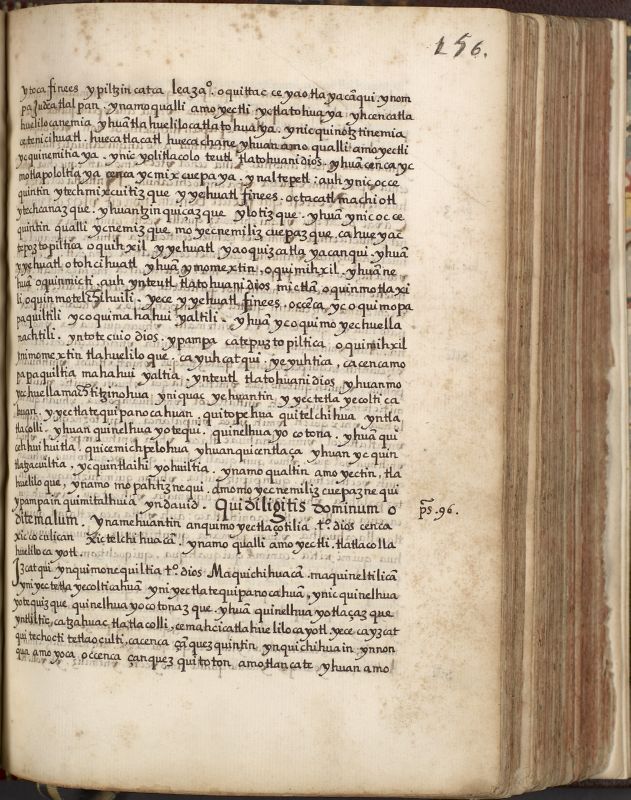 156.
ytoca finees ypiltzin catca leazaº. oquittac ce yaotlayacāqui. ynom
pa Judea tlalpan. ynamo qualli amo yectli yctlatohuaya yhcencatla
huelilocanemia yhuā tlahuelilocatlatohuaya. ynic quinotz tinemia
ce tenicihuatl. hueca tlacatl huecachane yhuan amo qualli amo yectli
yc quinemitiaya. ynic yolitlacolo teutl tlatohuani dios. yhuā cenca yc
motlapololtiaya cenca yc mixcuepaya. ynaltepetl: auh ynic occe
quintin ytech mixcuitizque yyehuatl finees. octacatl machiotl
ytechcanazque. yhuan tzinquicazque ylotizque. yhuā ynic occe
quintin qualli ycnemizque, mo yecnemiliz cuepazque, ca hue yac
tepoztopiltica oquihxil. yyehuatl yaoquizcatla yacanqui. yhuā
yyehuatl otohcihuatl yhuā ynomextin, oquimihxil. yhuā ne
huā oquinmicti. auh ynteutl tlatohuani dios mictlā oquinmotlaxi
li, oquinmotelchihuili. yece yyehuatl finees, occēca, yc oquimopa
paquiltili yc oquimahahuiyaltili. yhuā yc oquimo yechuella
machtili. yntotecuio dios. ypampa catepuztopiltica oquimihxil
mimomextin tlahuelilo que. ca yuhcatqui. yeyuhtica, cacencamo
papaquiltia mahahuiyaltia. ynteutl tlatohuani dios yhuanmo
yechuellamachtitzinohua yniquac yehuantin yyectetlayecoltica
huan. yyectlatequipanocahuan. quitopehua quitelchihua yntla
tlacolli. yhuan quinelhuayotequi. quinelhuayocotona. yhuā qui
cehuihuitla. quicemichpelohua yhuan quicentlaça yhuan yc quin
tlahzacuiltia, yc quintlaihiyohuiltia. ynamo qualtin amo yectin, tla
huelilo que, ynamo mopahtiznequi. amomo yecnemilizcuepaznequi
ypampa in quimitalhuia yn dauid. Qui diligitis dominum o
dite malum. Ynamehuantin anquimoyectlaçotilia. tº. dios cenca
xiccocolican xictelchihuacā. ynamo qualli amo yectli. tlatlacolla
huelilocayotl.
ps. 96.
Izcatqui ynquimonequiltia tº. dios Maquichihuacā. maquineltilicā
yniyectetlayecolticahuā yniyectlatequipanocahuā, ynic quinelhua
yotequizque, quinelhuayocotonazque. yhuā quinelhuayotlaçazque
yntliltic, catzahuac, tlatlacolli, cemahcicatlahuelilocayotl. yece cayzcat
qui techocti tetlaoculti, cacenca çāquezquintin ynquichihua in ynnon
qua amo yoca, occenca çanquezquitoton, amo tlancate yhuan amo